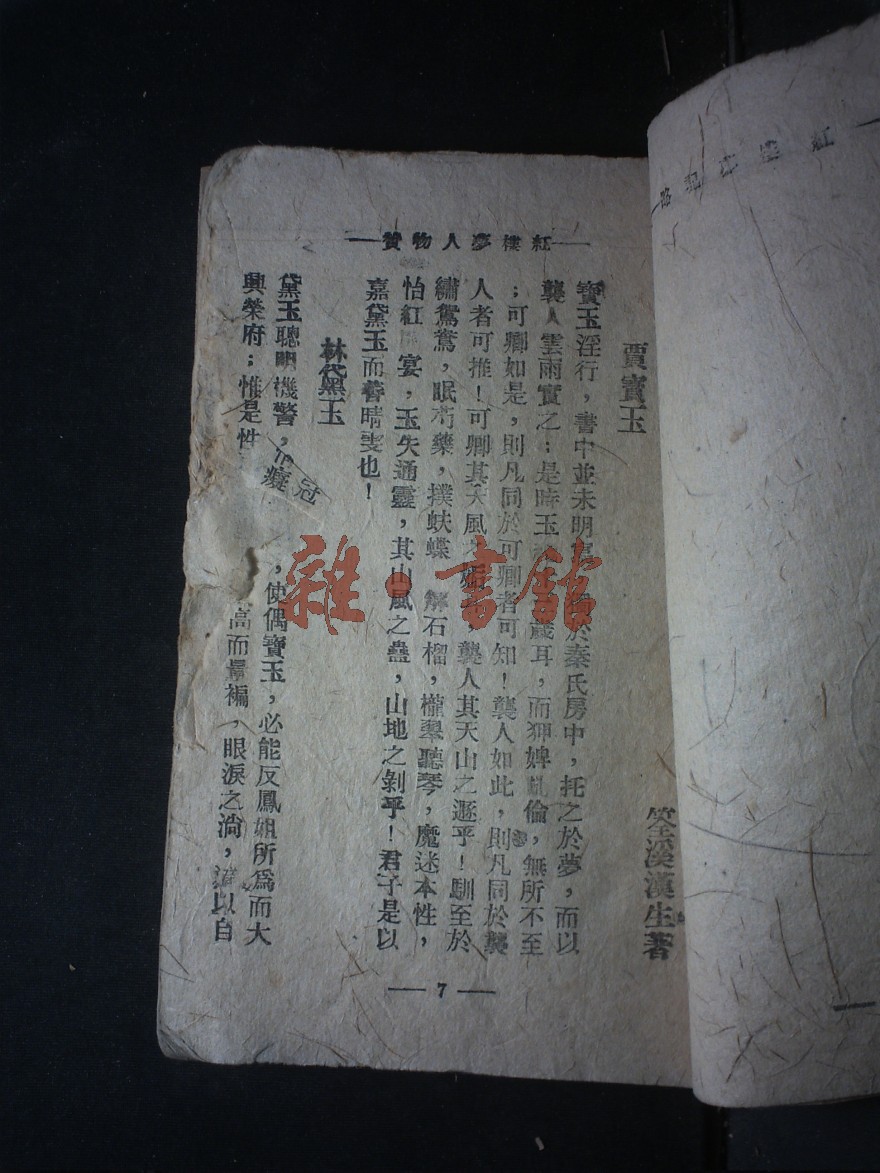 紅樓夢人物贊
賈寶玉
筌溪漢生著
寶玉淫行，書中並未明　於秦氏房中，托之於夢，而以
襲人雲雨實之；是時玉　歲耳，而狎婢亂倫，無所不至
；可卿如是，則凡同於可卿者可知！襲人如此，則凡同於襲
人者可推！可卿其天風之姤　，襲人其天山之遯乎！馴至於
繡鴛鴦，眠芍藥，撲蚨蝶　解石榴，櫳翠聽琴，魔迷本性，
怡紅　宴，玉失通靈，其山風之蠱，山地之剝乎！君子是以
嘉黛玉而　晴雯也！
林黛玉
黛玉聰明機警，　癡　，使偶寶玉，必能反鳳姐所為而大
興榮府；惟是性　高而量褊，眼淚之淌，　以自
冠
7
雜·書館